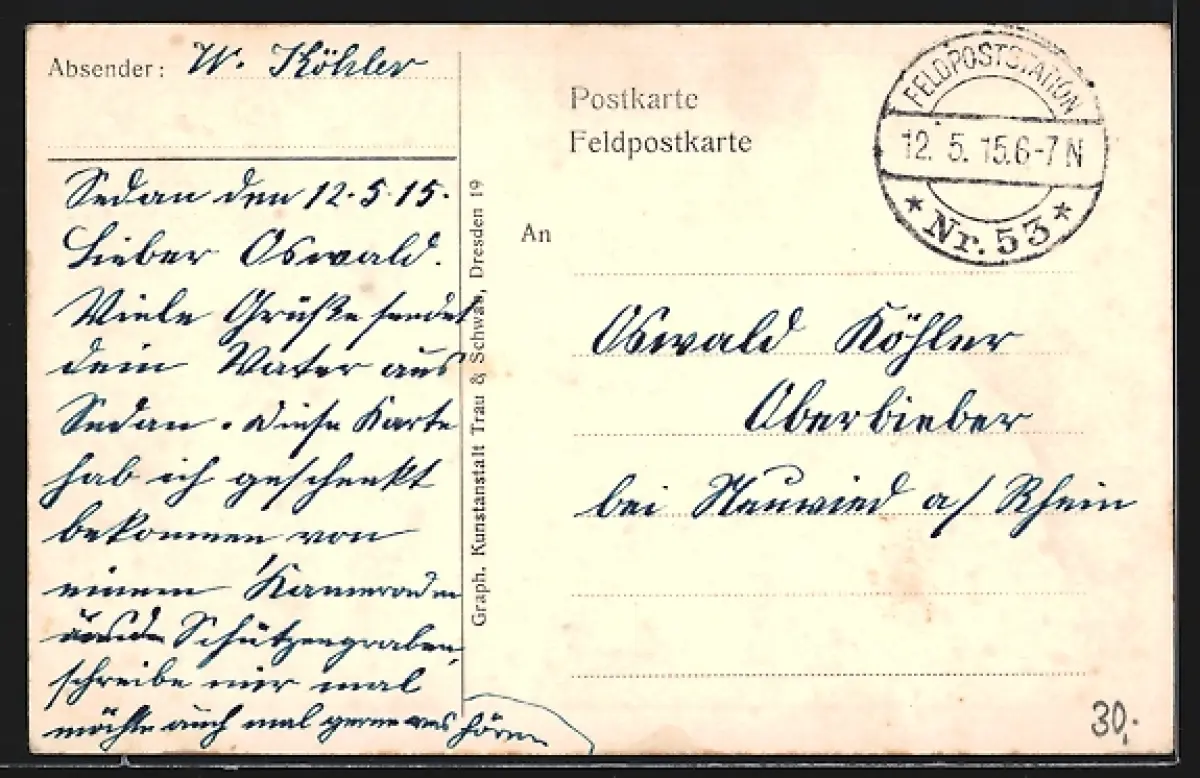 Absender: W. Köhler
Sedan den 12.5.15.
Lieber Oswald.
Viele Grüße sendet
dein Vater aus
Sedan. Diese Karte
hab ich geschenkt
bekommen von
einem Kameraden
Schützengraben,
schreibe mir mal
möchte auch mal gerne was hören
Graph. Kunstanstalt Trau & Schwab, Dresden 19
Postkarte
Feldpostkarte
FELDPOSTSTATION
12. 5. 15. 6-7 N
* Nr. 53 *
An
Oswald Köhler
Oberbieber
bei Neuwied a/ Rhein
30,-